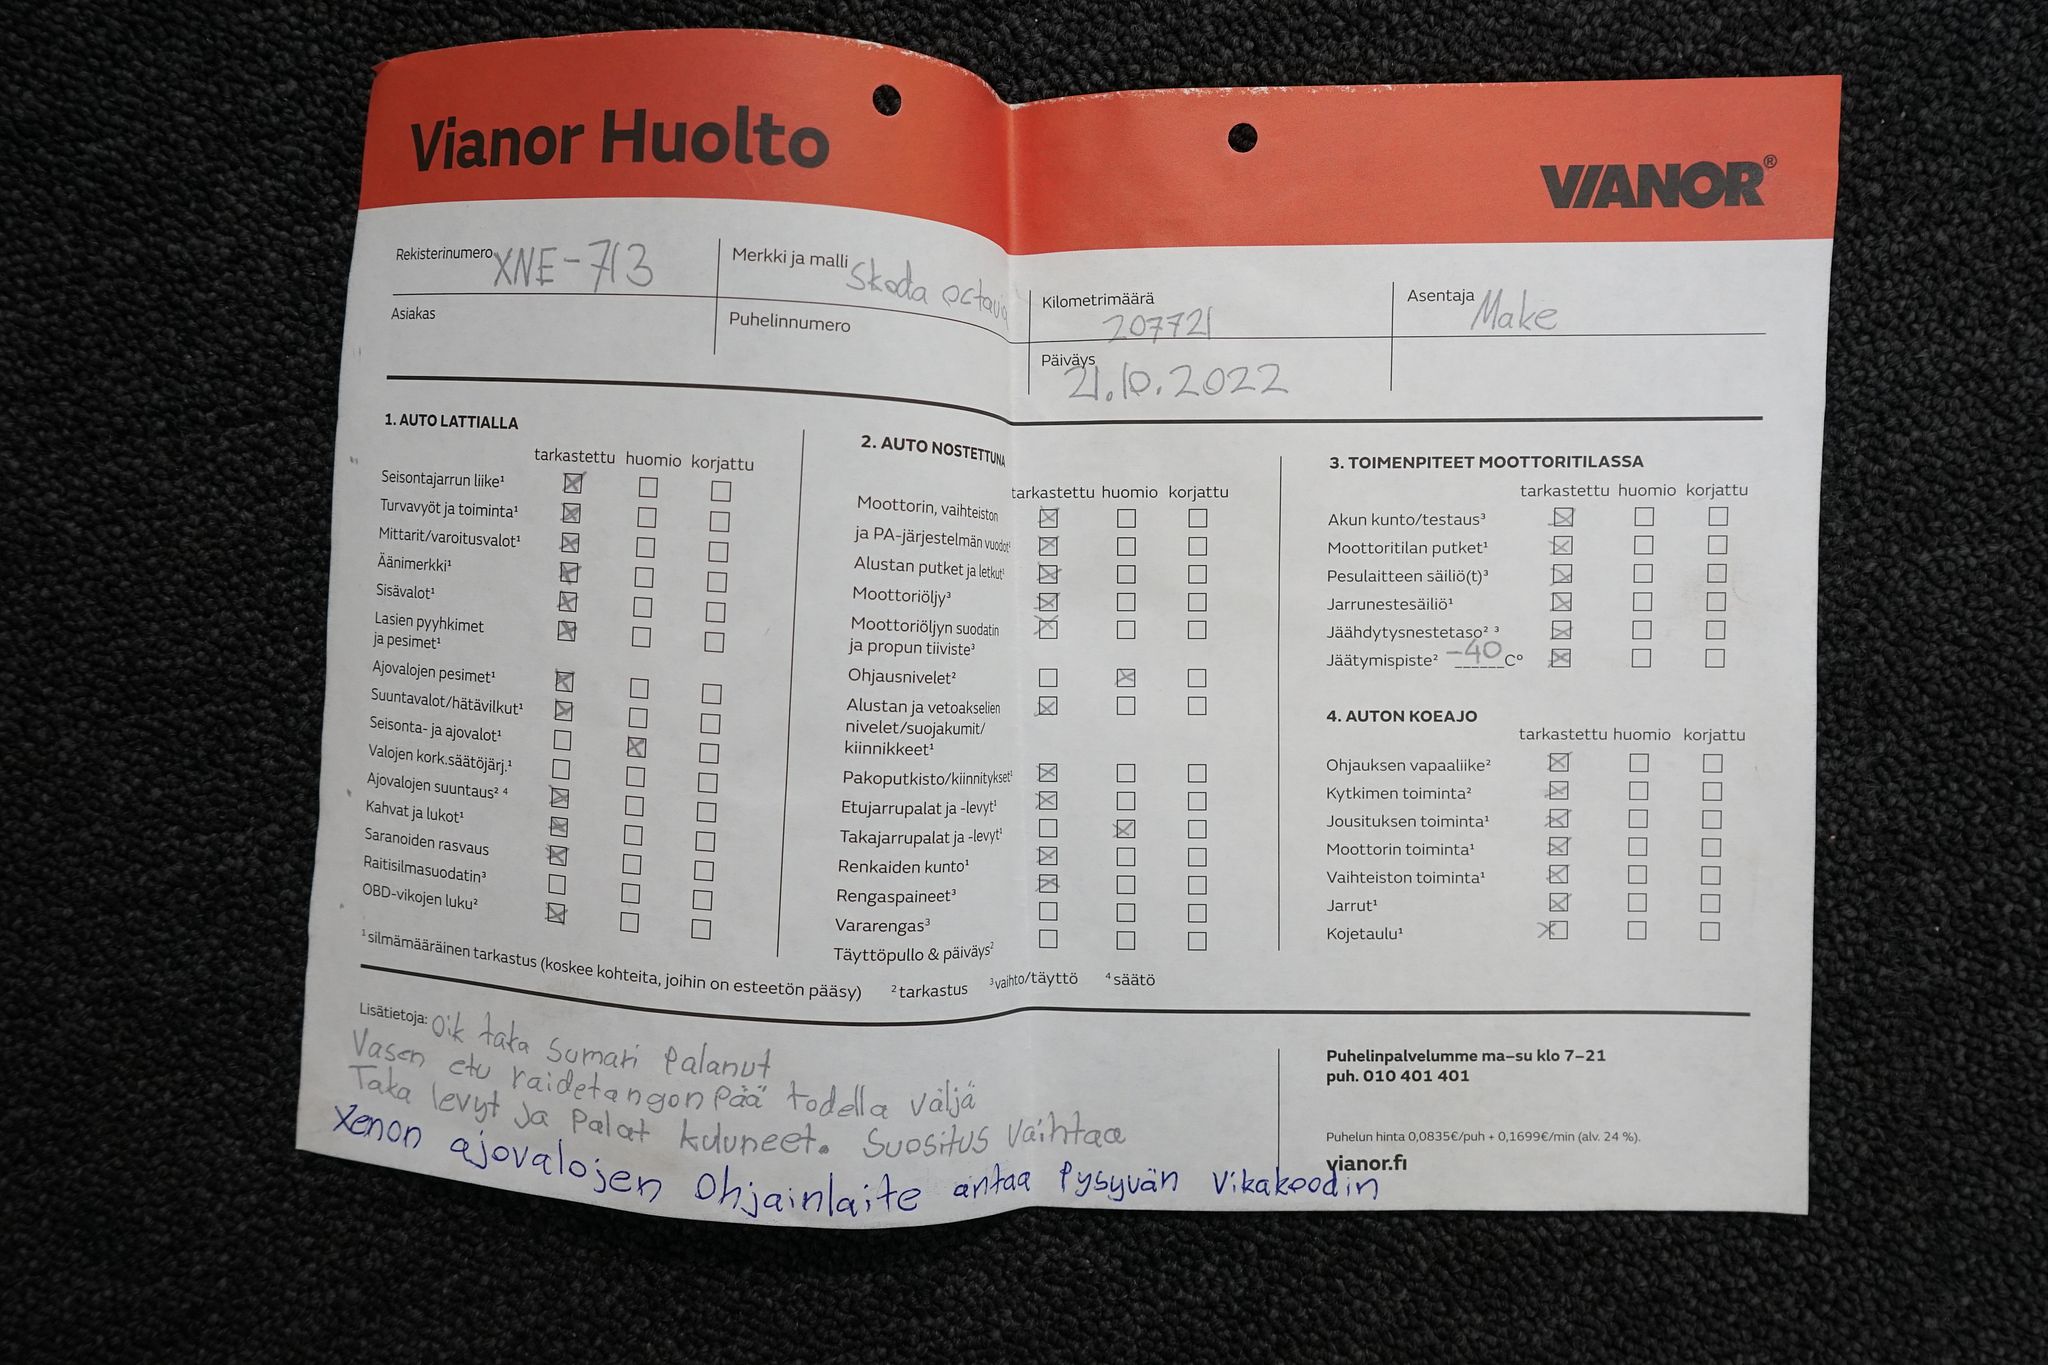 Vianor Huolto
VIANOR®
Rekisterinumero XNE-713
Merkki ja malli Skoda octavia
Kilometrimäärä 207721
Asentaja Make
Asiakas
Puhelinnumero
Päiväys 21.10.2022
1. AUTO LATTIALLA
tarkastettu huomio korjattu
Seisontajarrun liike¹
Turvavyöt ja toiminta¹
Mittarit/varoitusvalot¹
Äänimerkki¹
Sisävalot¹
Lasien pyyhkimet
ja pesimet¹
Ajovalojen pesimet¹
Suuntavalot/hätävilkut¹
Seisonta- ja ajovalot¹
Valojen kork.säätöjärj.¹
Ajovalojen suuntaus² ⁴
Kahvat ja lukot¹
Saranoiden rasvaus
Raitisilmasuodatin³
OBD-vikojen luku²
2. AUTO NOSTETTUNA
tarkastettu huomio korjattu
Moottorin, vaihteiston
ja PA-järjestelmän vuodot¹
Alustan putket ja letkut¹
Moottoriöljy³
Moottoriöljyn suodatin
ja propun tiiviste³
Ohjausnivelet²
Alustan ja vetoakselien
nivelet/suojakumit/
kiinnikkeet¹
Pakoputkisto/kiinnitykset¹
Etujarrupalat ja -levyt¹
Takajarrupalat ja -levyt¹
Renkaiden kunto¹
Rengaspaineet³
Vararengas³
Täyttöpullo & päiväys²
3. TOIMENPITEET MOOTTORITILASSA
tarkastettu huomio korjattu
Akun kunto/testaus³
Moottoritilan putket¹
Pesulaitteen säiliö(t)³
Jarrunestesäiliö¹
Jäähdytysnestetaso² ³
Jäätymispiste² -40 C°
4. AUTON KOEAJO
tarkastettu huomio korjattu
Ohjauksen vapaaliike²
Kytkimen toiminta²
Jousituksen toiminta¹
Moottorin toiminta¹
Vaihteiston toiminta¹
Jarrut¹
Kojetaulu¹
¹ silmämääräinen tarkastus (koskee kohteita, joihin on esteetön pääsy) ² tarkastus ³ vaihto/täyttö ⁴ säätö
Lisätietoja: Oik taka sumari palanut
Vasen etu raidetangon pää todella väljä
Taka levyt ja Palat kuluneet. Suositus vaihtaa
Xenon ajovalojen Ohjainlaite antaa Pysyvän vikakoodin
Puhelinpalvelumme ma–su klo 7–21
puh. 010 401 401
Puhelun hinta 0,0835€/puh + 0,1699€/min (alv. 24 %).
vianor.fi